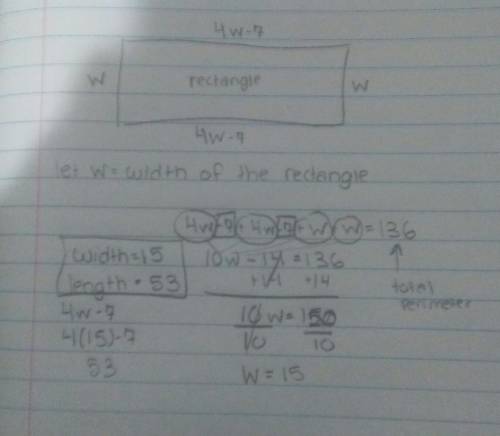 4w-7
w rectangle w
4w-7
let w = width of the rectangle
4w-7+4w-7+w+w=136
width=15 10w-14=136
length=53 +14 +14 total perimeter
4w-7 10w=150
4(15)-7 10 10
53 w=15